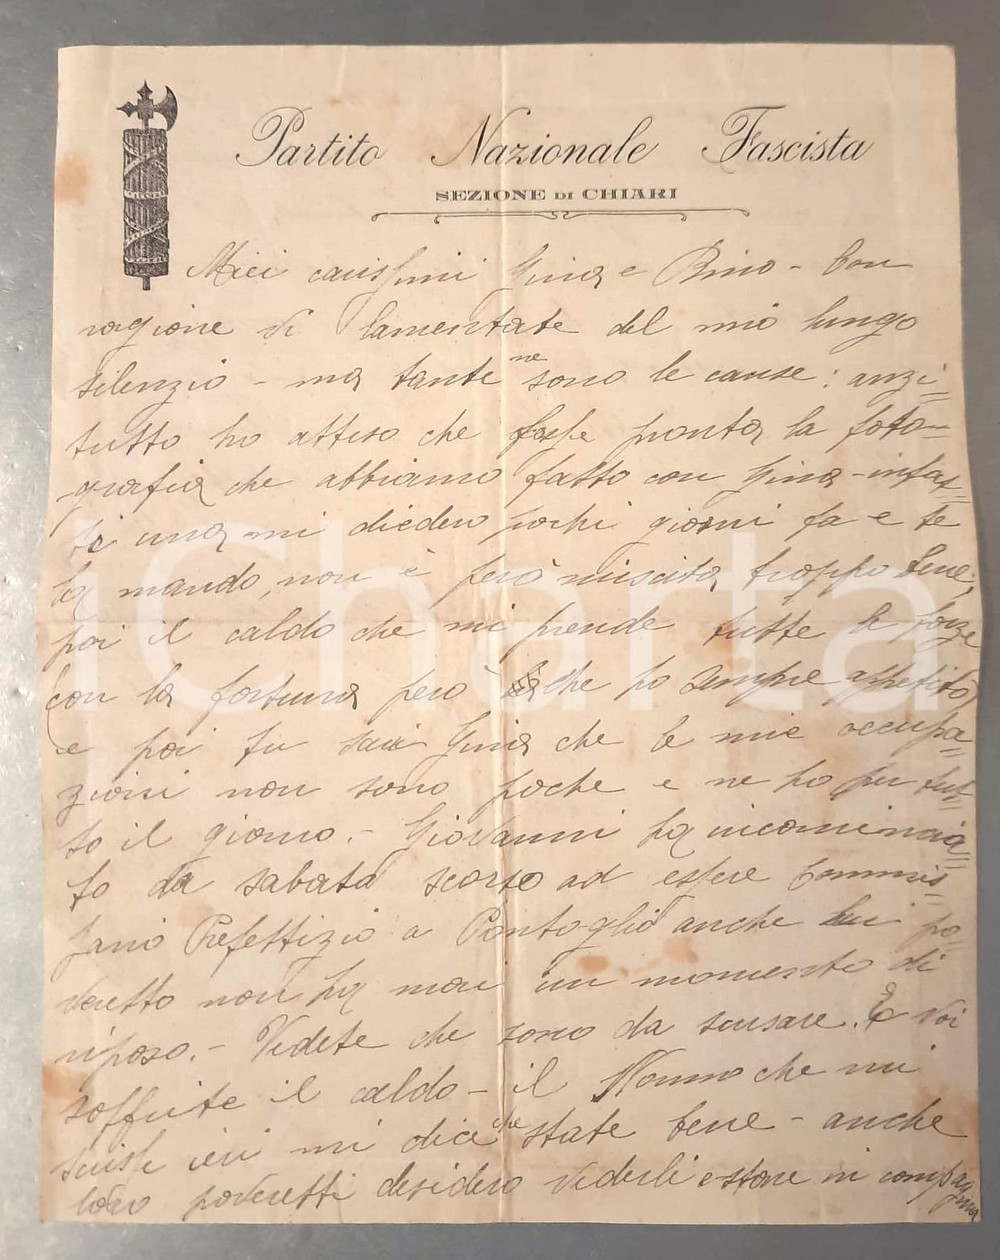 Partito Nazionale Fascista
SEZIONE DI CHIARI
Miei carissimi Gina e Rino - Con
ragione vi lamentate del mio lungo
silenzio - ma tante ne sono le cause: anzi=
tutto ho atteso che fosse pronta la foto=
grafia che abbiamo fatto con Gina - infat=
ti una mi diedero pochi giorni fa e te
la mando, non è però riuscita troppo bene;
poi il caldo che mi prende tutte le forze
(con la fortuna però che ho sempre appetito)
e poi tu sai Gina che le mie occupa=
zioni non sono poche e ne ho per tut=
to il giorno. - Giovanni ha incomincia=
to da sabato scorso ad essere Commis=
sario Prefettizio a Pontoglio anche lui po=
veretto non ha mai un momento di
riposo. - Vedete che sono da scusare. E voi
soffrite il caldo - il Nonno che mi
scrisse ieri mi dice che state bene - anche
loro poveretti desidero vederli e stare in compagnia
iCharta